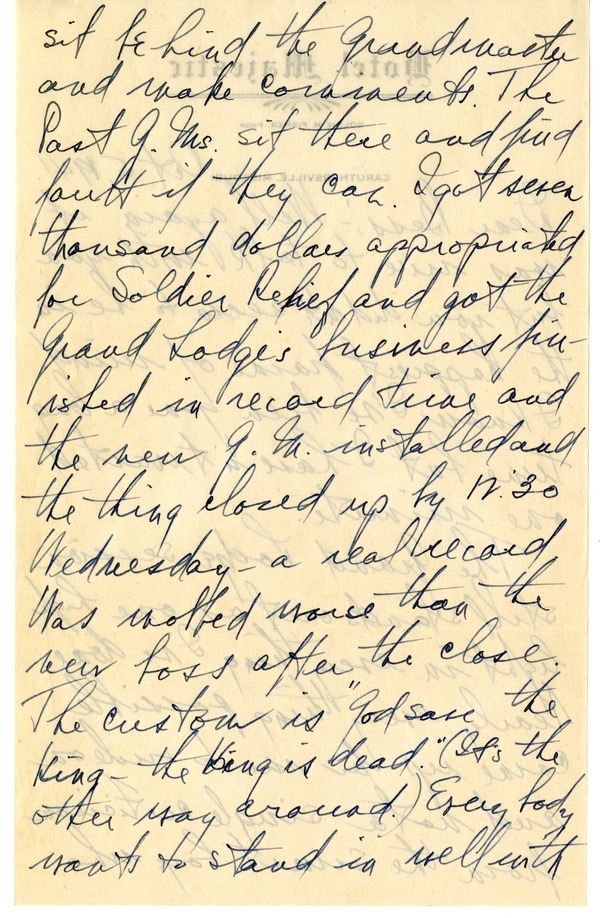 sit behind the Grandmaster
and make comments. The
Past G. Ms. sit there and find
fault if they can. I got seven
thousand dollars appropriated
for Soldier Relief and got the
Grand Lodge's business fin-
ished in record time and
the new G. M. installed and
the thing closed up by 12:30
Wednesday - a real record.
Was mobbed worse than the
new boss after the close.
The custom is "God save the
King - the King is dead." (It's the
other way around.) Everybody
wants to stand in well with